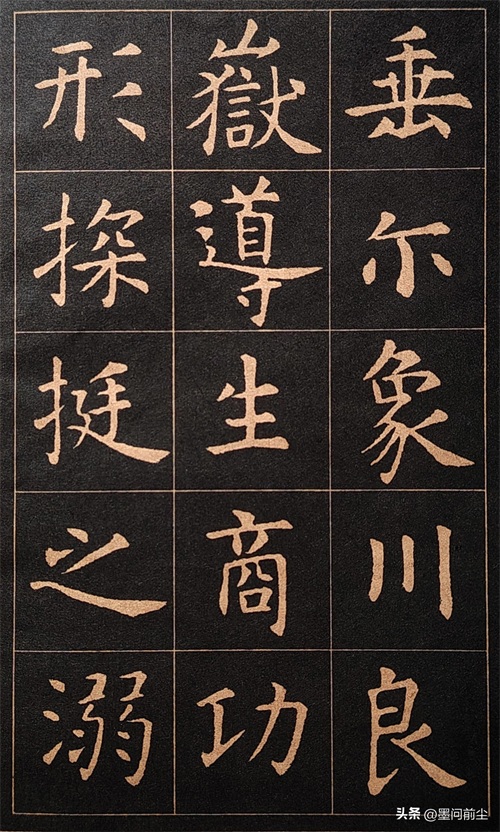 垂尔象川良
嶽導生商功
形探挺之溺
头条 @墨问前尘